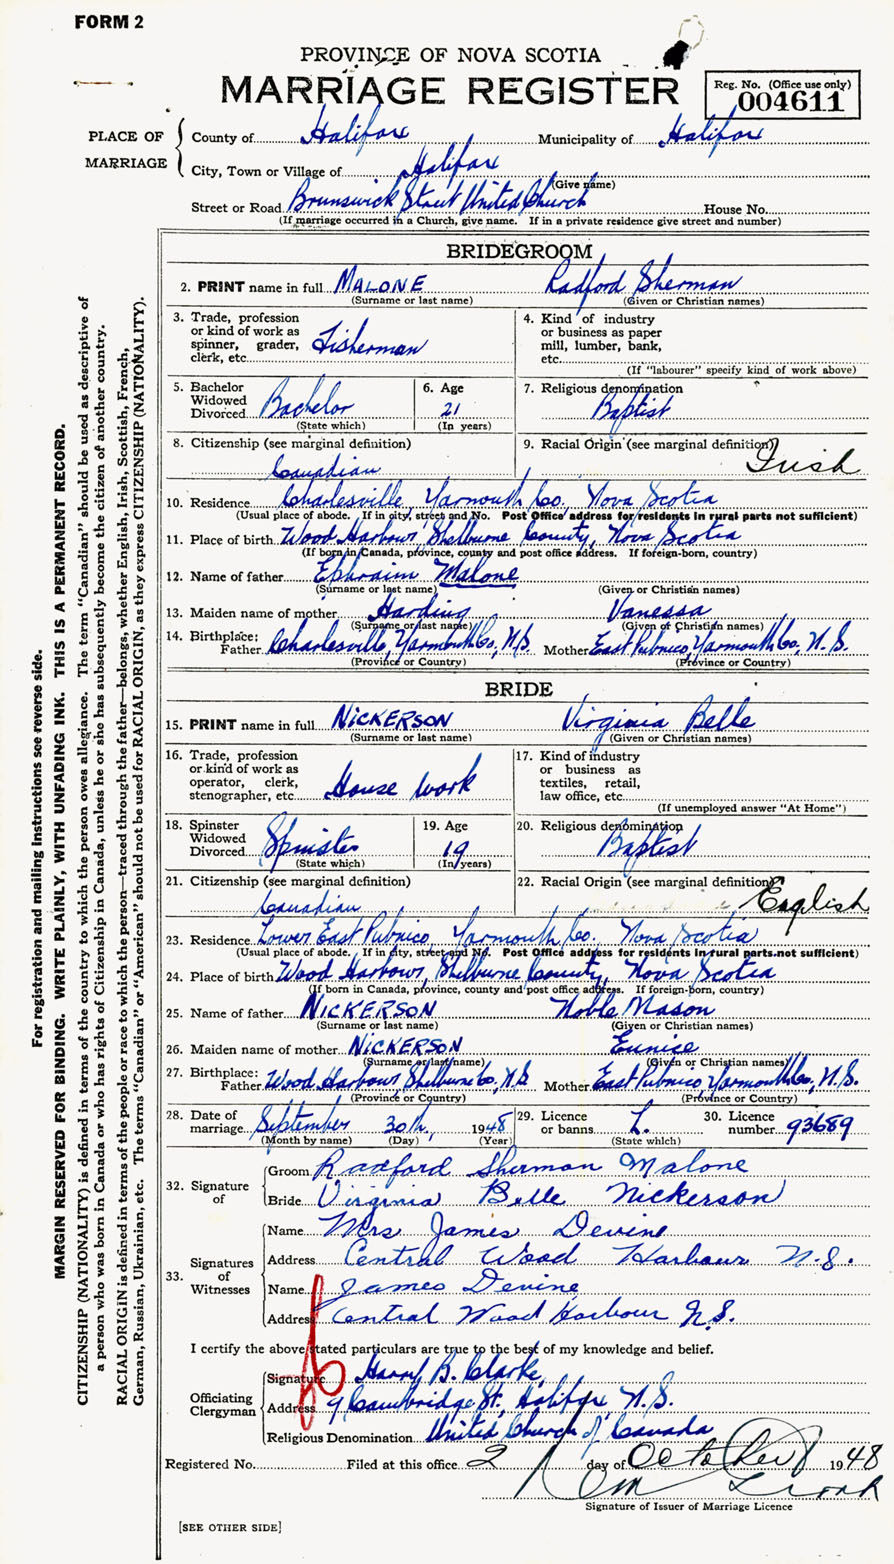 FORM 2
PROVINCE OF NOVA SCOTIA
MARRIAGE REGISTER
Reg. No. (Office use only)
004611
PLACE OF MARRIAGE
County of Halifax Municipality of Halifax
City, Town or Village of Halifax
(Give name)
Street or Road Brunswick Street United Church House No.
(If marriage occurred in a Church, give name. If in a private residence give street and number)
BRIDEGROOM
2. PRINT name in full MALONE Radford Sherman
(Surname or last name) (Given or Christian names)
3. Trade, profession or kind of work as spinner, grader, clerk, etc. Fisherman
4. Kind of industry or business as paper mill, lumber, bank, etc.
(If "labourer" specify kind of work above)
5. Bachelor Widowed Divorced Bachelor
(State which)
6. Age 21
(In years)
7. Religious denomination Baptist
8. Citizenship (see marginal definition) Canadian
9. Racial Origin (see marginal definition) Irish
10. Residence Charlesville, Yarmouth Co. Nova Scotia
(Usual place of abode. If in city, street and No. Post Office address for residents in rural parts not sufficient)
11. Place of birth Wood Harbour, Shelburne County, Nova Scotia
(If born in Canada, province, county and post office address. If foreign-born, country)
12. Name of father Ephraim Malone
(Surname or last name) (Given or Christian names)
13. Maiden name of mother Harding Vanessa
(Surname or last name) (Given or Christian names)
14. Birthplace: Father Charlesville, Yarmouth Co, N.S. Mother East Pubnico, Yarmouth Co, N.S.
(Province or Country) (Province or Country)
BRIDE
15. PRINT name in full NICKERSON Virginia Belle
(Surname or last name) (Given or Christian names)
16. Trade, profession or kind of work as operator, clerk, stenographer, etc. House work
17. Kind of industry or business as textiles, retail, law office, etc.
(If unemployed answer "At Home")
18. Spinster Widowed Divorced Spinster
(State which)
19. Age 19
(In years)
20. Religious denomination Baptist
21. Citizenship (see marginal definition) Canadian
22. Racial Origin (see marginal definition) English
23. Residence Lower East Pubnico, Yarmouth Co. Nova Scotia
(Usual place of abode. If in city, street and No. Post Office address for residents in rural parts not sufficient)
24. Place of birth Wood Harbour, Shelburne County, Nova Scotia
(If born in Canada, province, county and post office address. If foreign-born, country)
25. Name of father NICKERSON Noble Mason
(Surname or last name) (Given or Christian names)
26. Maiden name of mother NICKERSON Eunice
(Surname or last name) (Given or Christian names)
27. Birthplace: Father Wood Harbour, Shelburne Co, N.S Mother East Pubnico, Yarmouth Co, N.S.
(Province or Country) (Province or Country)
28. Date of marriage September 30th, 1948
(Month by name) (Day) (Year)
29. Licence or banns L.
(State which)
30. Licence number 93689
32. Signature of
Groom Radford Sherman Malone
Bride Virginia Belle Nickerson
33. Signatures of Witnesses
Name Mrs James Devine
Address Central Wood Harbour N.S.
Name James Devine
Address Central Wood Harbour N.S.
I certify the above stated particulars are true to the best of my knowledge and belief.
Officiating Clergyman
Signature Harry B. Clarke,
Address 9 Cambridge St, Halifax N.S.
Religious Denomination United Church of Canada
Registered No. Filed at this office 2 day of October 1948
Signature of Issuer of Marriage Licence
[SEE OTHER SIDE]
For registration and mailing instructions see reverse side.
MARGIN RESERVED FOR BINDING. WRITE PLAINLY, WITH UNFADING INK. THIS IS A PERMANENT RECORD.
CITIZENSHIP (NATIONALITY) is defined in terms of the country to which the person owes allegiance. The term "Canadian" should be used as descriptive of
a person who was born in Canada or who has rights of Citizenship in Canada, unless he or she has subsequently become the citizen of another country.
RACIAL ORIGIN is defined in terms of the people or race to which the person—traced through the father—belongs, whether English, Irish, Scottish, French,
German, Russian, Ukrainian, etc. The terms "Canadian" or "American" should not be used for RACIAL ORIGIN, as they express CITIZENSHIP (NATIONALITY).